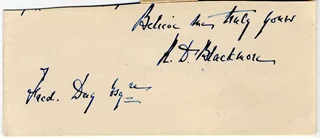 Believe me truly yours
R. D. Blackmore
Fred. Day Esqre